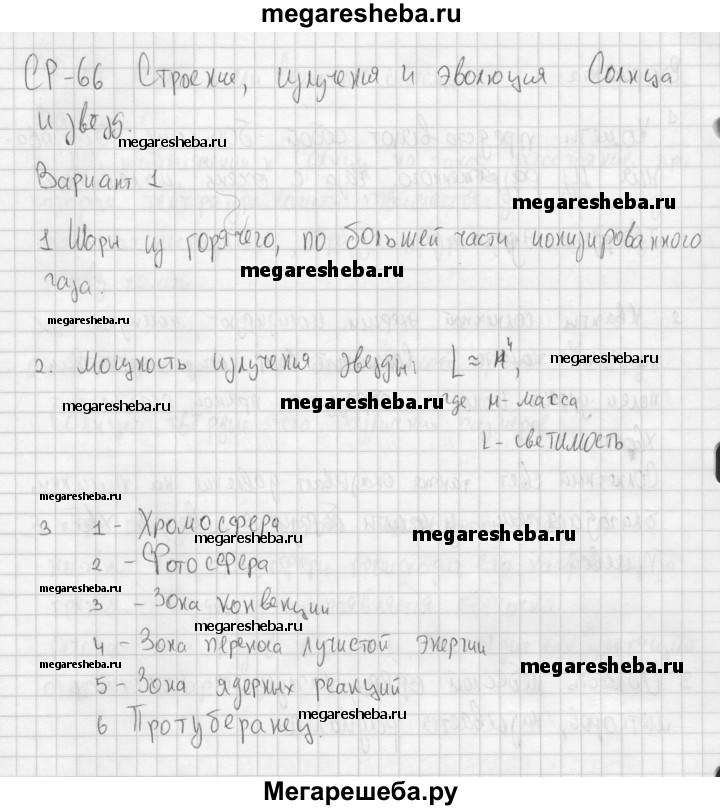 megaresheba.ru
СР-66 Строение, излучения и эволюция Солнца
и звёзд.
megaresheba.ru
Вариант 1
megaresheba.ru
1 Шары из горячего, по большей части ионизированного
megaresheba.ru
газа.
megaresheba.ru
2. Мощность излучения звезды: L ≈ M⁴,
megaresheba.ru
megaresheba.ru
megaresheba.ru
где м - масса
L - светимость
megaresheba.ru
3 1 - Хромосфера
megaresheba.ru
megaresheba.ru
2 - Фотосфера
megaresheba.ru
3 - Зона конвекции
megaresheba.ru
4 - Зона переноса лучистой энергии
megaresheba.ru
megaresheba.ru
5 - Зона ядерных реакций
6 Протуберанец.
megaresheba.ru
Мегарешеба.ру